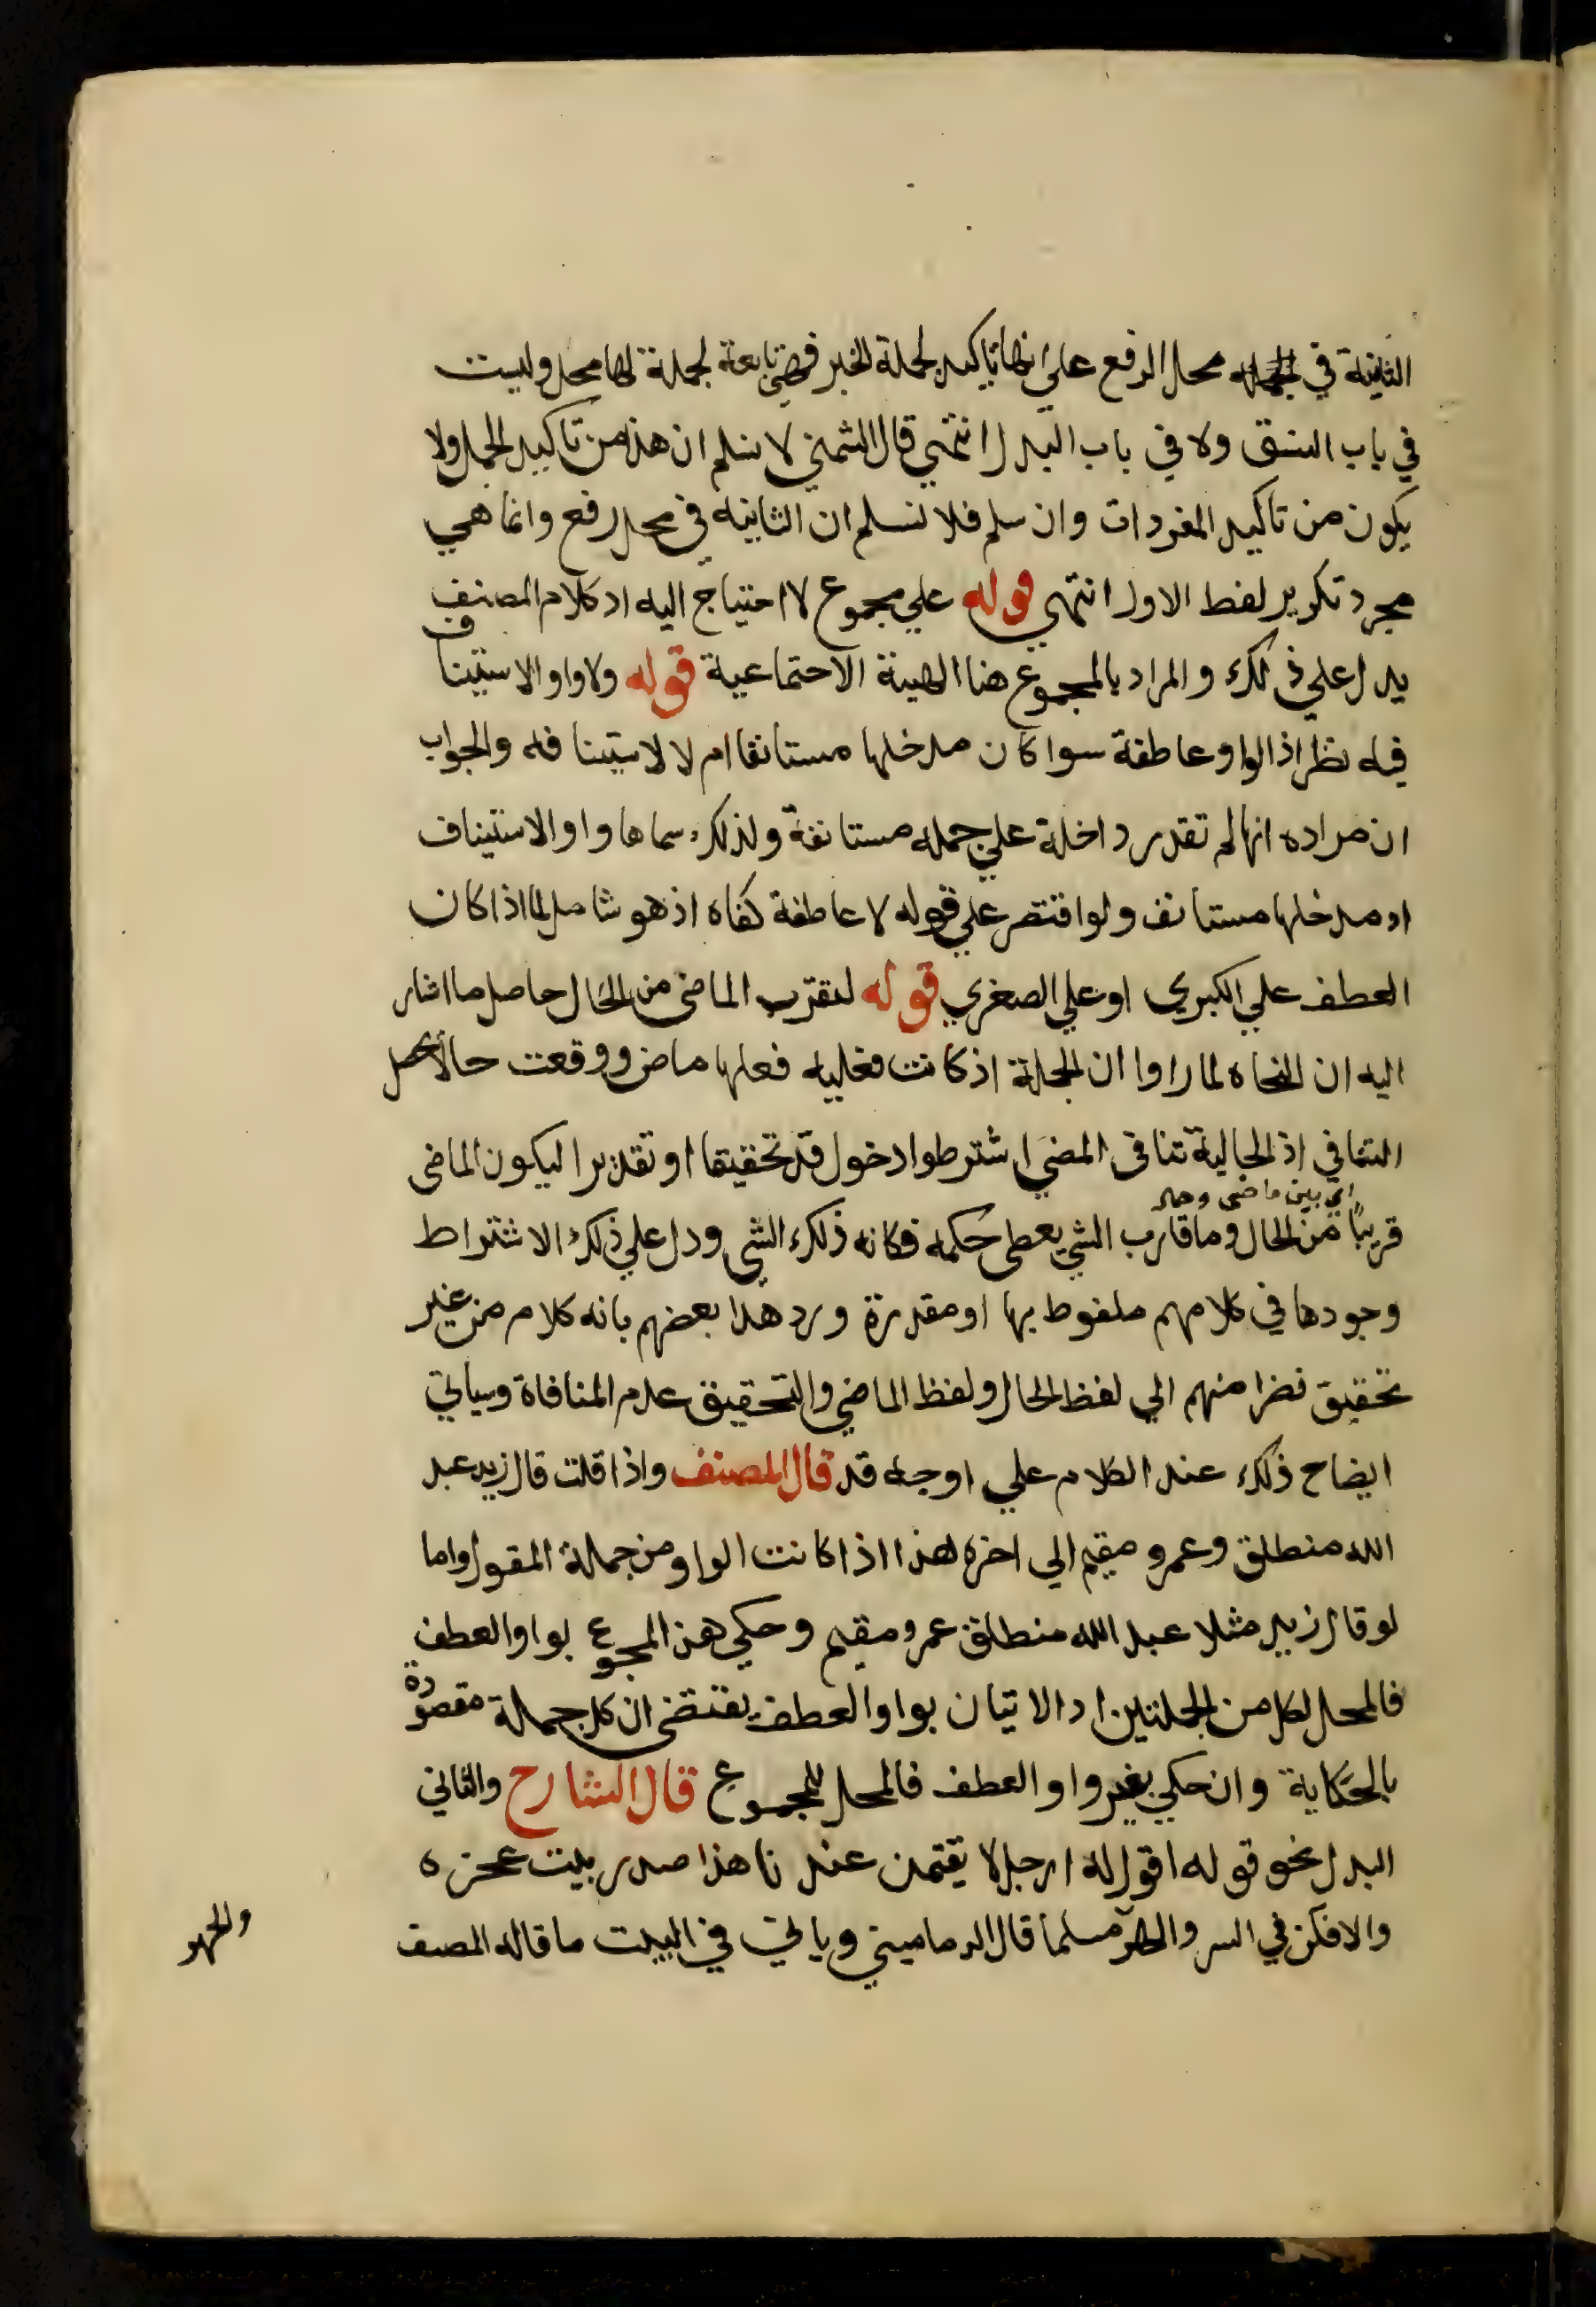 الثانية في محل الرفع على انها تاكيد لجملة الخبر فهي تابعة لجملة لها محل وليست
في باب النسق ولا في باب البدل انتهي قال الشمني لا نسلم ان هذا من تاكيد الجمل ولا
يكون من تاكيد المفردات وان سلم فلا نسلم ان الثانيه في محل رفع وانما هي
مجرد تكرير لفظ الاول انتهي قوله علي مجموع لا احتياج اليه اذ كلام المصنف
يدل علي ذلك والمراد بالمجموع هنا الهيئة الاجتماعية قوله ولا واو الاستيناف
فيه نظر اذ الواو عاطفة سوا كان مدخلها مستانفا ام لا لاستينافه والجواب
ان مراده انها لم تقدر داخلة علي جمله مستانفة ولذلك سماها واو الاستيناف
اذ مدخلها مستانف ولو اقتصر علي قوله لا عاطفة كفاه اذ هو شامل لما اذا كان
العطف علي الكبري او علي الصغري قوله لتقرب الماضى من الحال حاصل ما اشار
اليه ان النحاه لما راوا ان الجملة اذ كانت فعليه فعلها ماض ووقعت حالا يحصل
التنافي اذ الحالية تنافى المضي اشترطوا دخول قد تحقيقا او تقديرا ليكون الماضى
اي بين ماضى وحال
قريبًا من الحال وما قارب الشي يعطى حكمه فكانه ذلك الشي ودل علي ذلك الاشتراط
وجودها في كلامهم ملفوظ بها او مقدرة ورد هذا بعضهم بانه كلام من غير
تحقيق نضرا منهم الي لفظ الحال ولفظ الماضي والتحقيق عدم المنافاة وسياتي
ايضاح ذلك عند الكلام علي اوجه قد قال المصنف واذا قلت قال زيد عبد
الله منطلق وعمرو مقيم الي اخره هذا اذا كانت الواو من جملة المقول واما
لو قال زيد مثلا عبد الله منطلق عمرو مقيم وحكي هذا المجموع بواو العطف
فالمحل لكل من الجملتين اذ الاتيان بواو العطف يقتضى ان كل جملة مقصودة
بالحكاية وان حكي بغير واو العطف فالمحل للمجموع قال الشارح والثاني
البدل نحو قوله اقول له ارحل لا تقيمن عندنا هذا صدر بيت عجزه
والا فكن في السر والجهر مسلما قال الدماميني وياتي في البيت ما قاله المصنف
والجهر